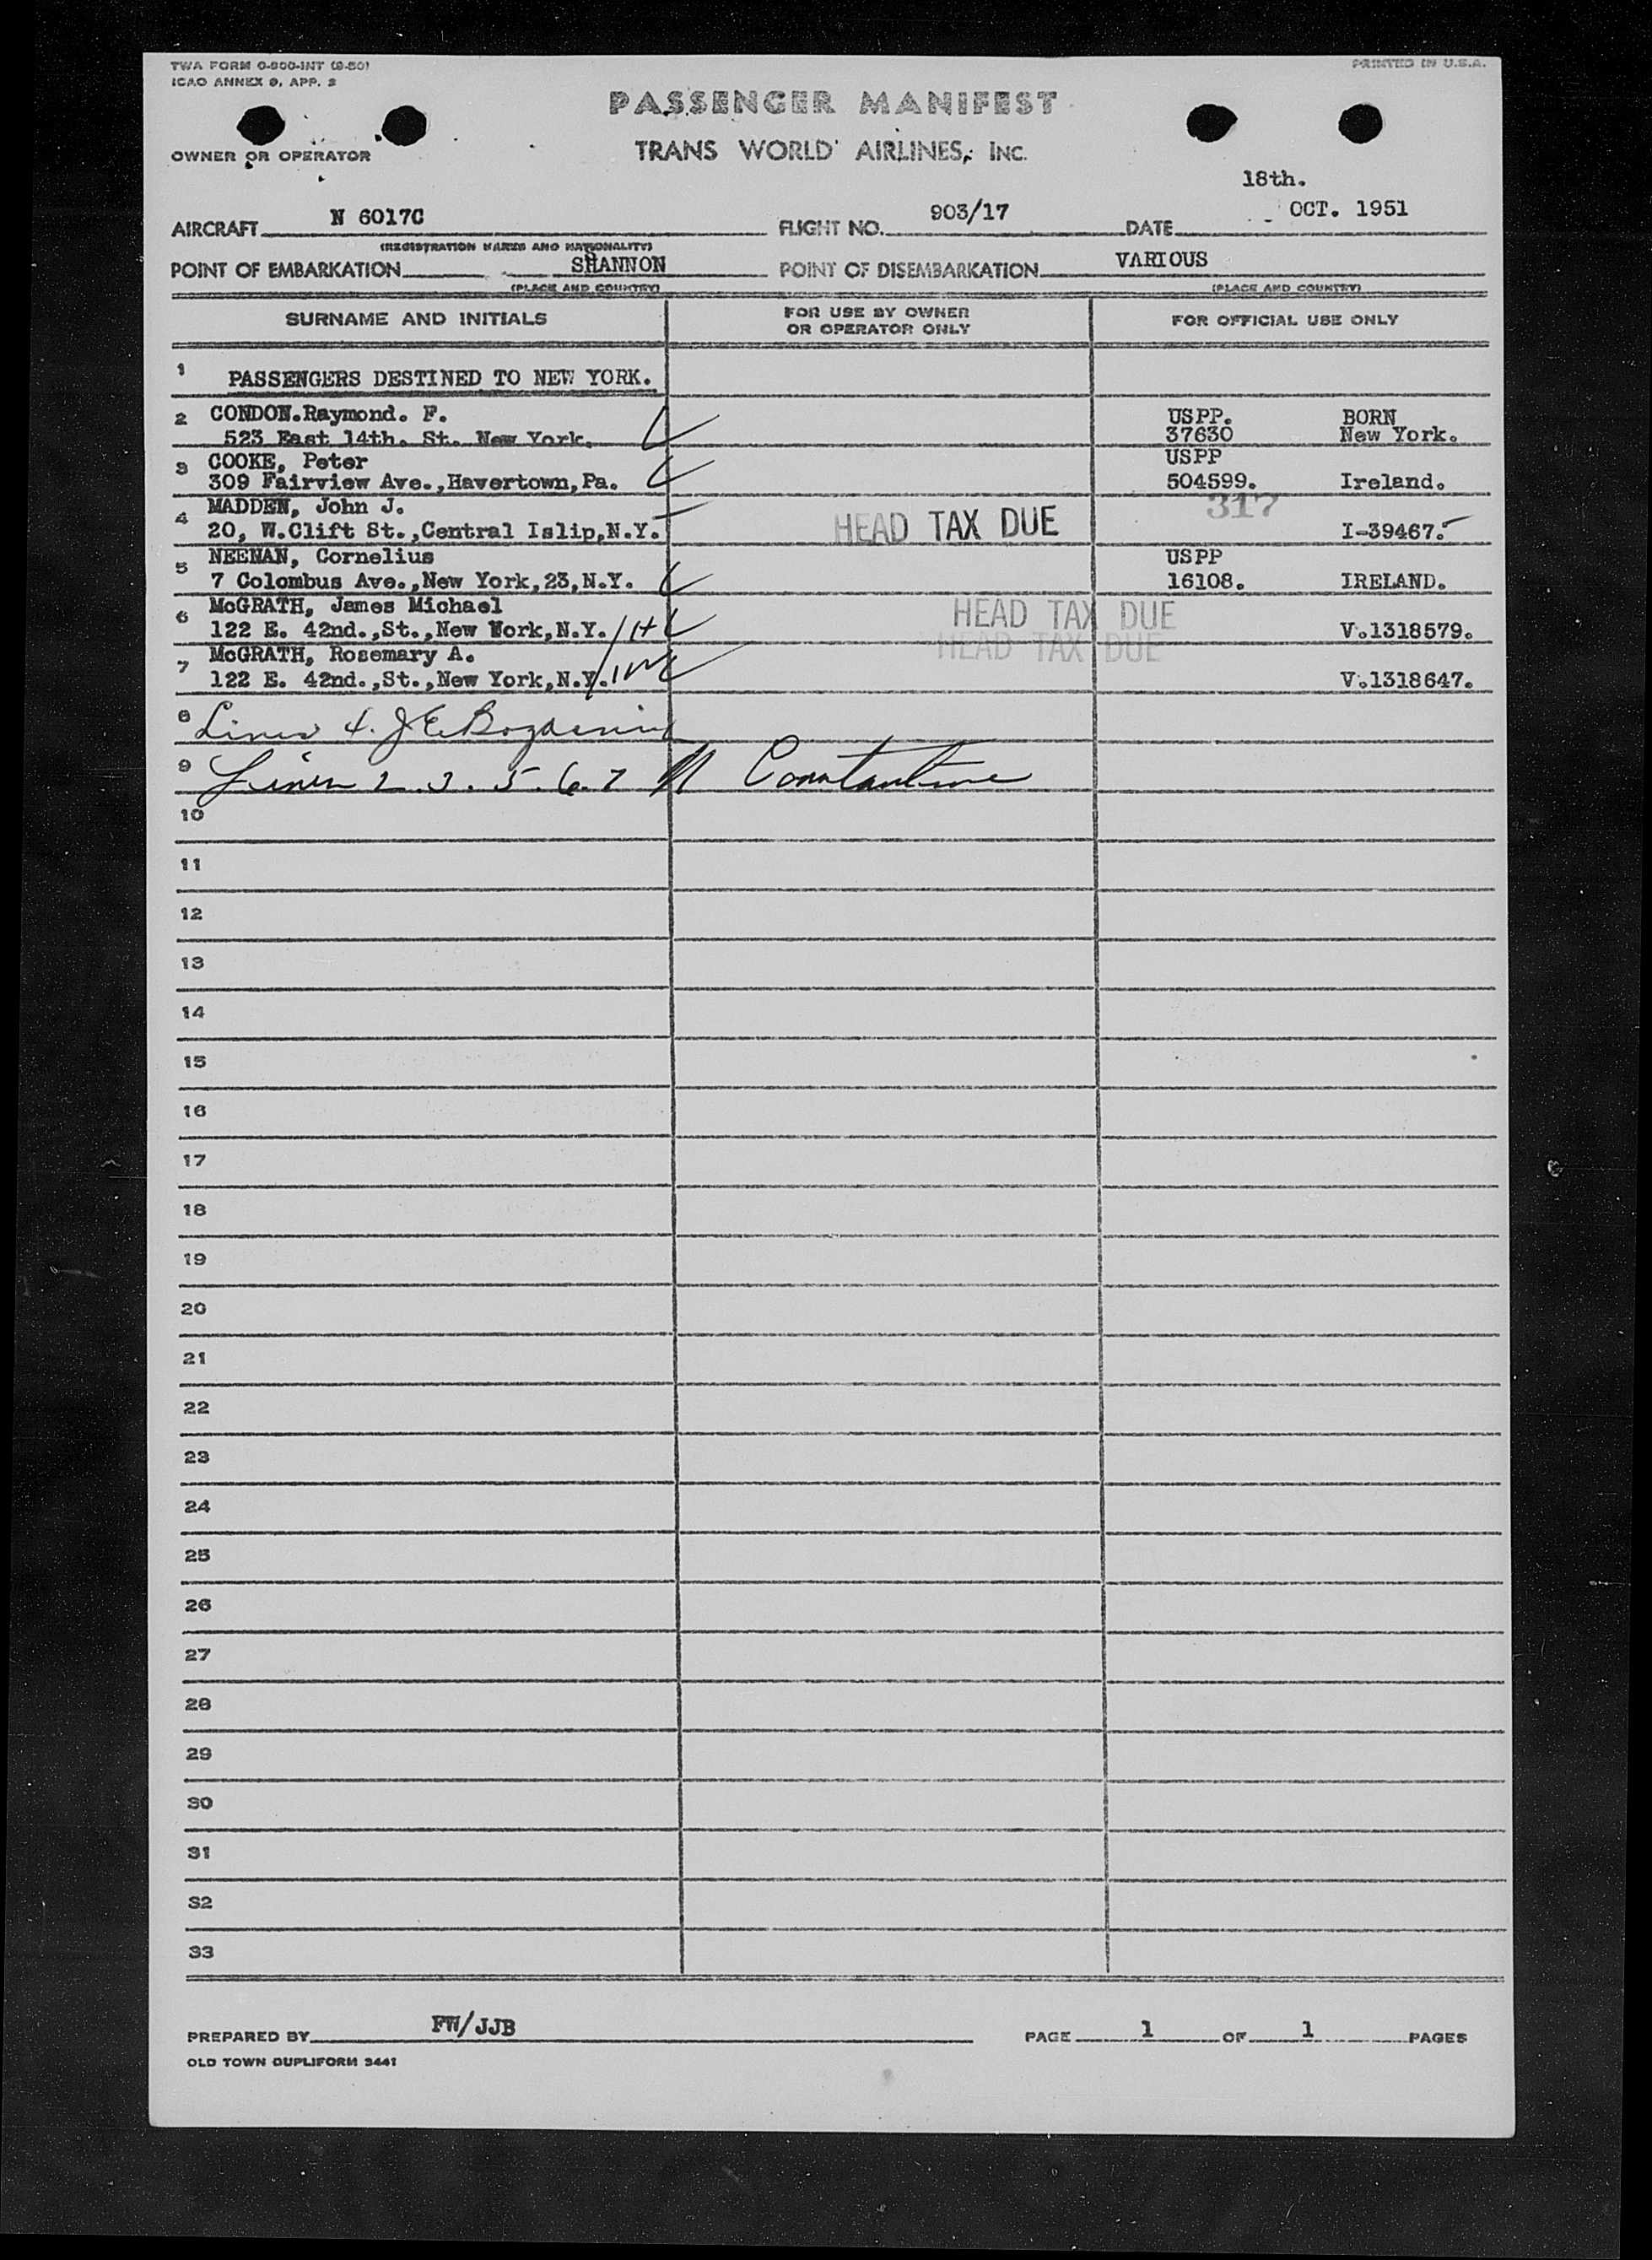 TWA FORM 0-800-INT (8-50)
ICAO ANNEX 9, APP. 2
PRINTED IN U.S.A.
PASSENGER MANIFEST
OWNER OR OPERATOR
TRANS WORLD AIRLINES, INC.
18th.
AIRCRAFT N 6017C FLIGHT NO. 903/17 DATE OCT. 1951
(REGISTRATION MARKS AND NATIONALITY)
POINT OF EMBARKATION SHANNON POINT OF DISEMBARKATION VARIOUS
(PLACE AND COUNTRY) (PLACE AND COUNTRY)
SURNAME AND INITIALS FOR USE BY OWNER OR OPERATOR ONLY FOR OFFICIAL USE ONLY
1 PASSENGERS DESTINED TO NEW YORK.
2 CONDON.Raymond. F. USPP. BORN
523 East 14th. St. New York. 37630 New York.
3 COOKE, Peter USPP
309 Fairview Ave.,Havertown,Pa. 504599. Ireland.
4 MADDEN, John J. 317
20, W.Clift St.,Central Islip,N.Y. HEAD TAX DUE I-39467.
5 NEENAN, Cornelius USPP
7 Colombus Ave.,New York,23,N.Y. 16108. IRELAND.
6 McGRATH, James Michael HEAD TAX DUE
122 E. 42nd.,St.,New York,N.Y. V.1318579.
HEAD TAX DUE
7 McGRATH, Rosemary A.
122 E. 42nd.,St.,New York,N.Y. V.1318647.
8 Lines 4.
9 Lines 2. 3. 5. 6. 7 N Constantine
10
11
12
13
14
15
16
17
18
19
20
21
22
23
24
25
26
27
28
29
30
31
32
33
PREPARED BY FW/JJB PAGE 1 OF 1 PAGES
OLD TOWN DUPLIFORM 3441